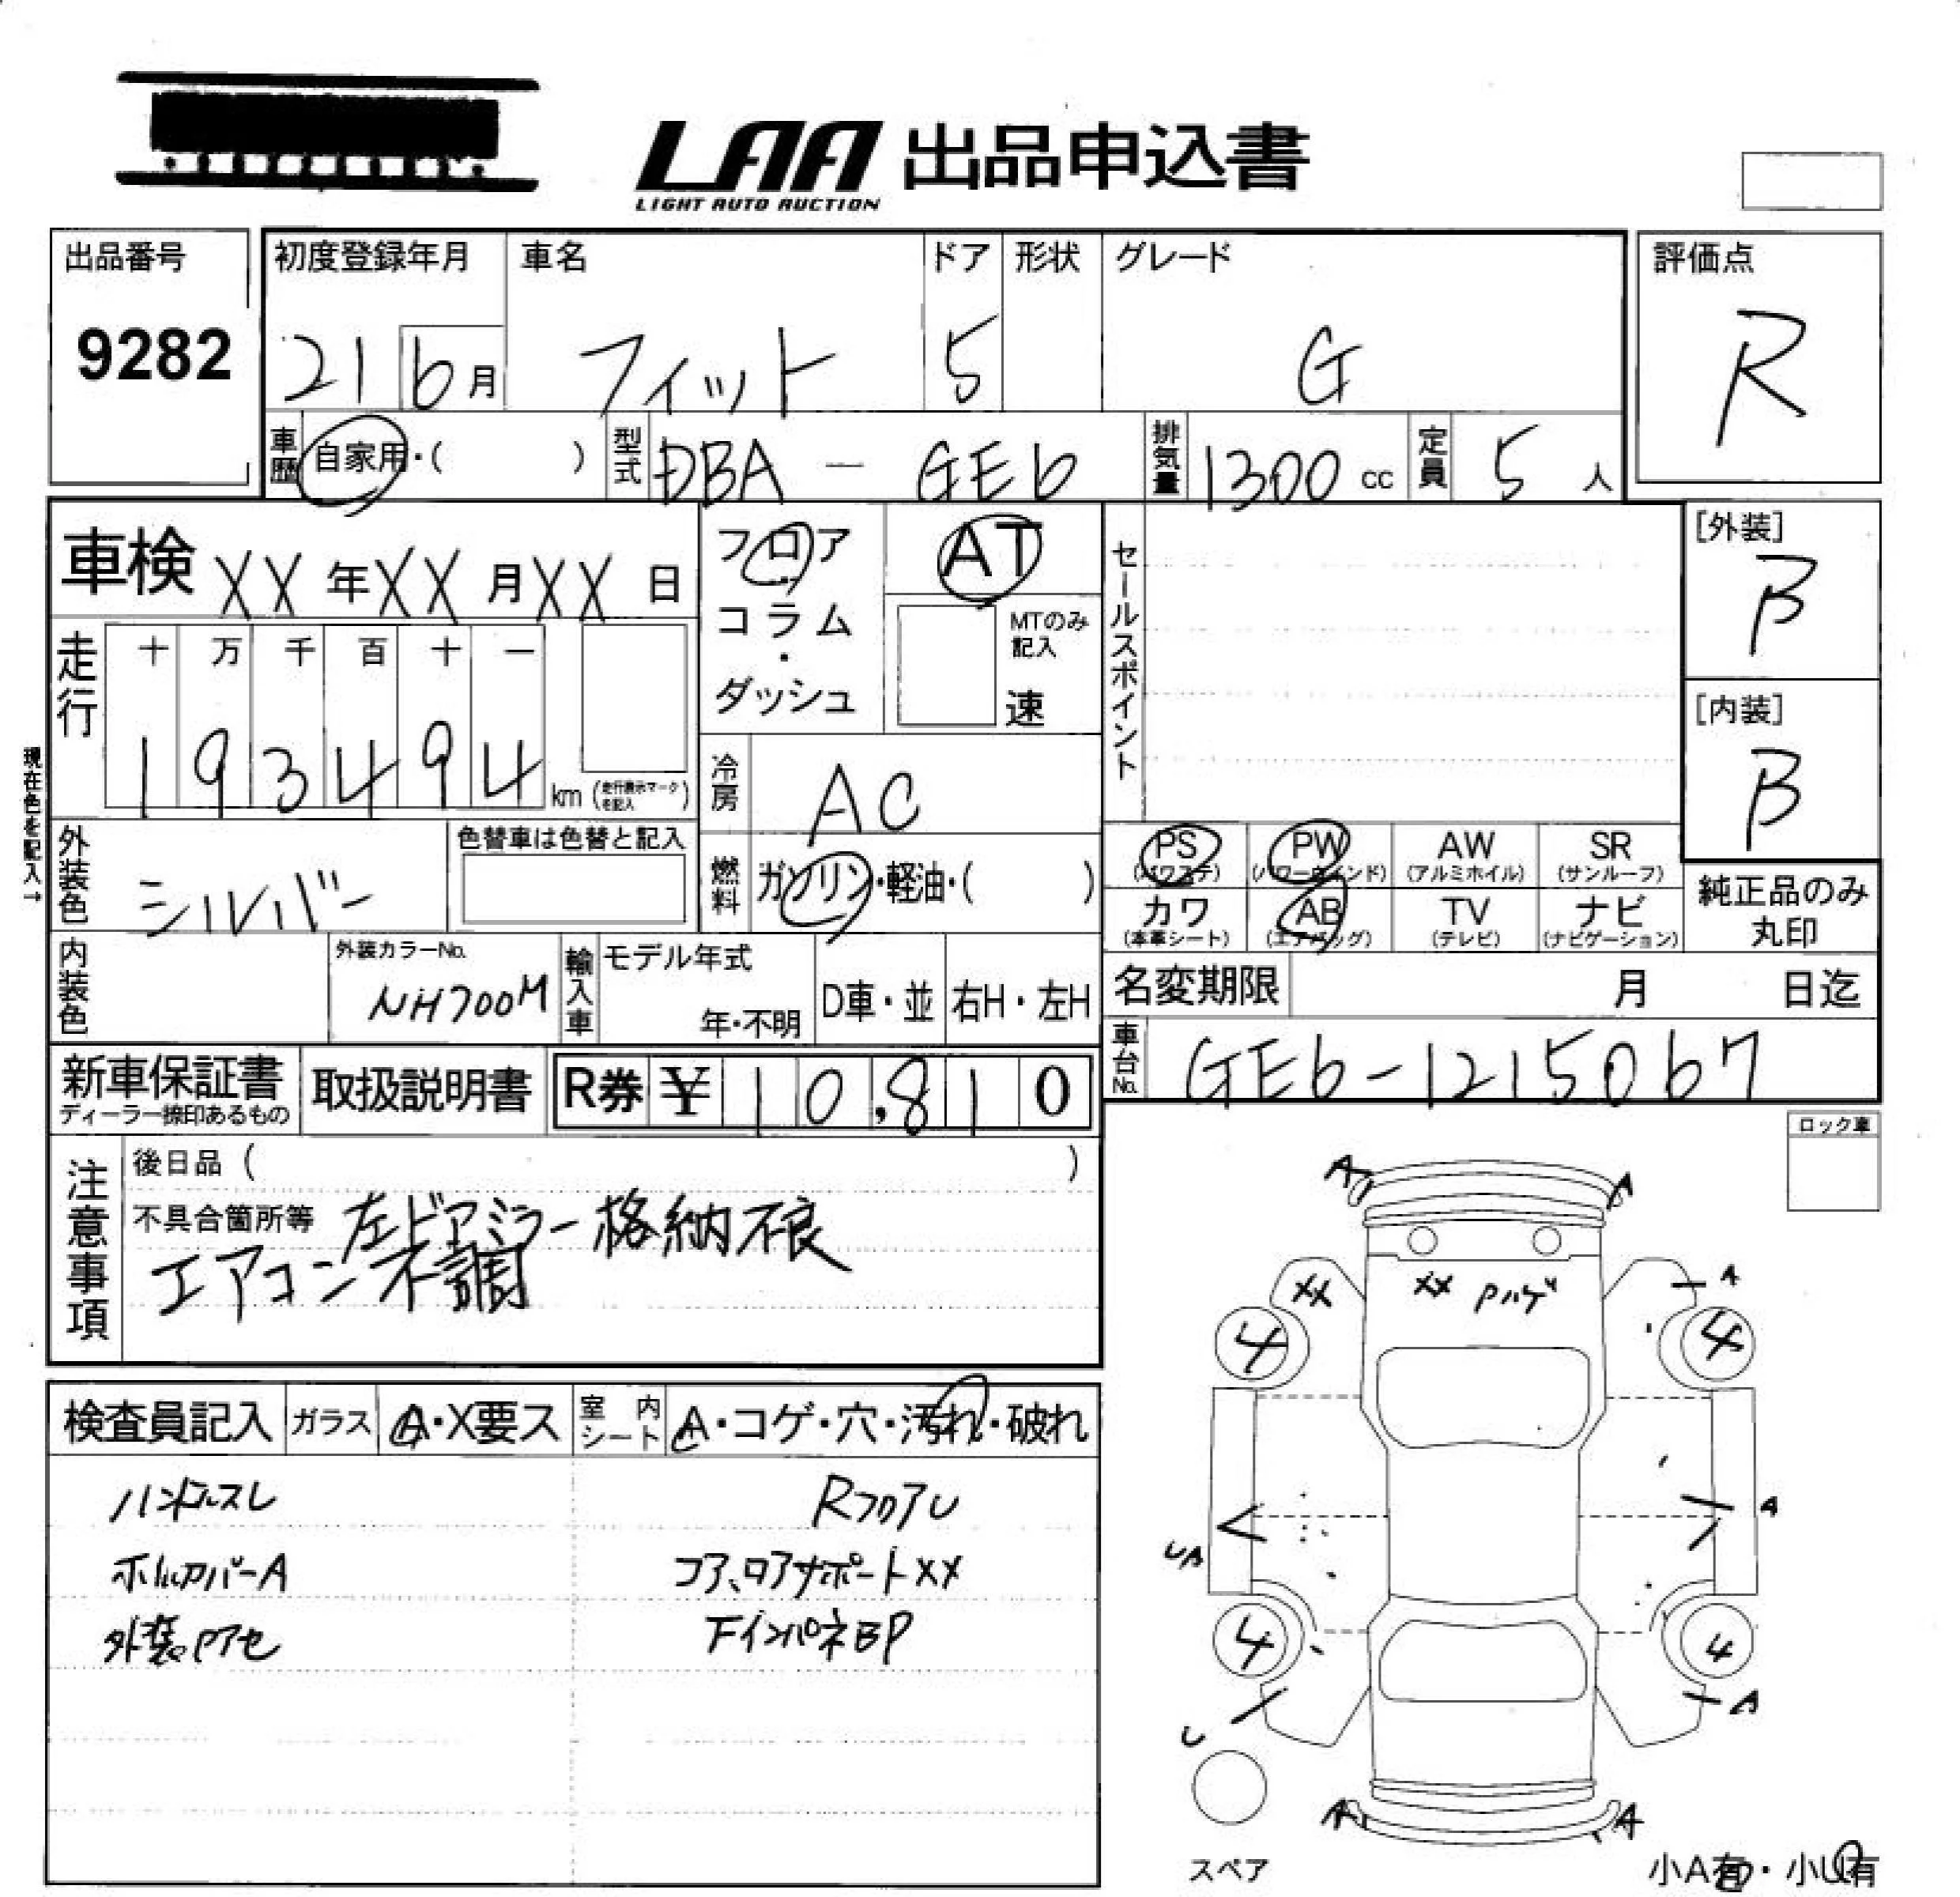 LAA 出品申込書
LIGHT AUTO AUCTION
出品番号
9282
初度登録年月
21 6月
車名
フィット
ドア
5
形状
グレード
G
評価点
R
車歴 自家用・( )
型式 DBA - GE6
排気量 1300 cc
定員 5 人
車検 XX 年 XX 月 XX 日
フロア・コラム・ダッシュ
AT
MTのみ記入
速
セールスポイント
[外装]
B
[内装]
B
走行
十 万 千 百 十 一
1 9 3 4 9 4 km (走行表示マークを記入)
現在色を記入→
外装色 シルバー
色替車は色替と記入
冷房 AC
燃料 ガソリン・軽油・( )
PS (パワステ) PW (パワーウィンド) AW (アルミホイル) SR (サンルーフ)
カワ (本革シート) AB (エアバッグ) TV (テレビ) ナビ (ナビゲーション)
純正品のみ丸印
内装色
外装カラーNo.
NH700M
輸入車 モデル年式 年・不明 D車・並 右H・左H
名変期限 月 日迄
車台No. GE6-1215067
新車保証書
ディーラー捺印あるもの
取扱説明書
R券 ¥ 10,810
ロック車
注意事項
後日品 ( )
不具合箇所等 左ドアミラー格納不良
エアコン不調
検査員記入 ガラス A・X要ス 室内シート A・コゲ・穴・汚れ・破れ
ハンドルスレ
RフロアU
ホイルカバーA
コア、ロアサポートXX
外装Pアセ
FインパネBP
A A
XX XX Pハゲ A
4 4
A
UA
4 4
A
U
A A
スペア
小A有・小U有